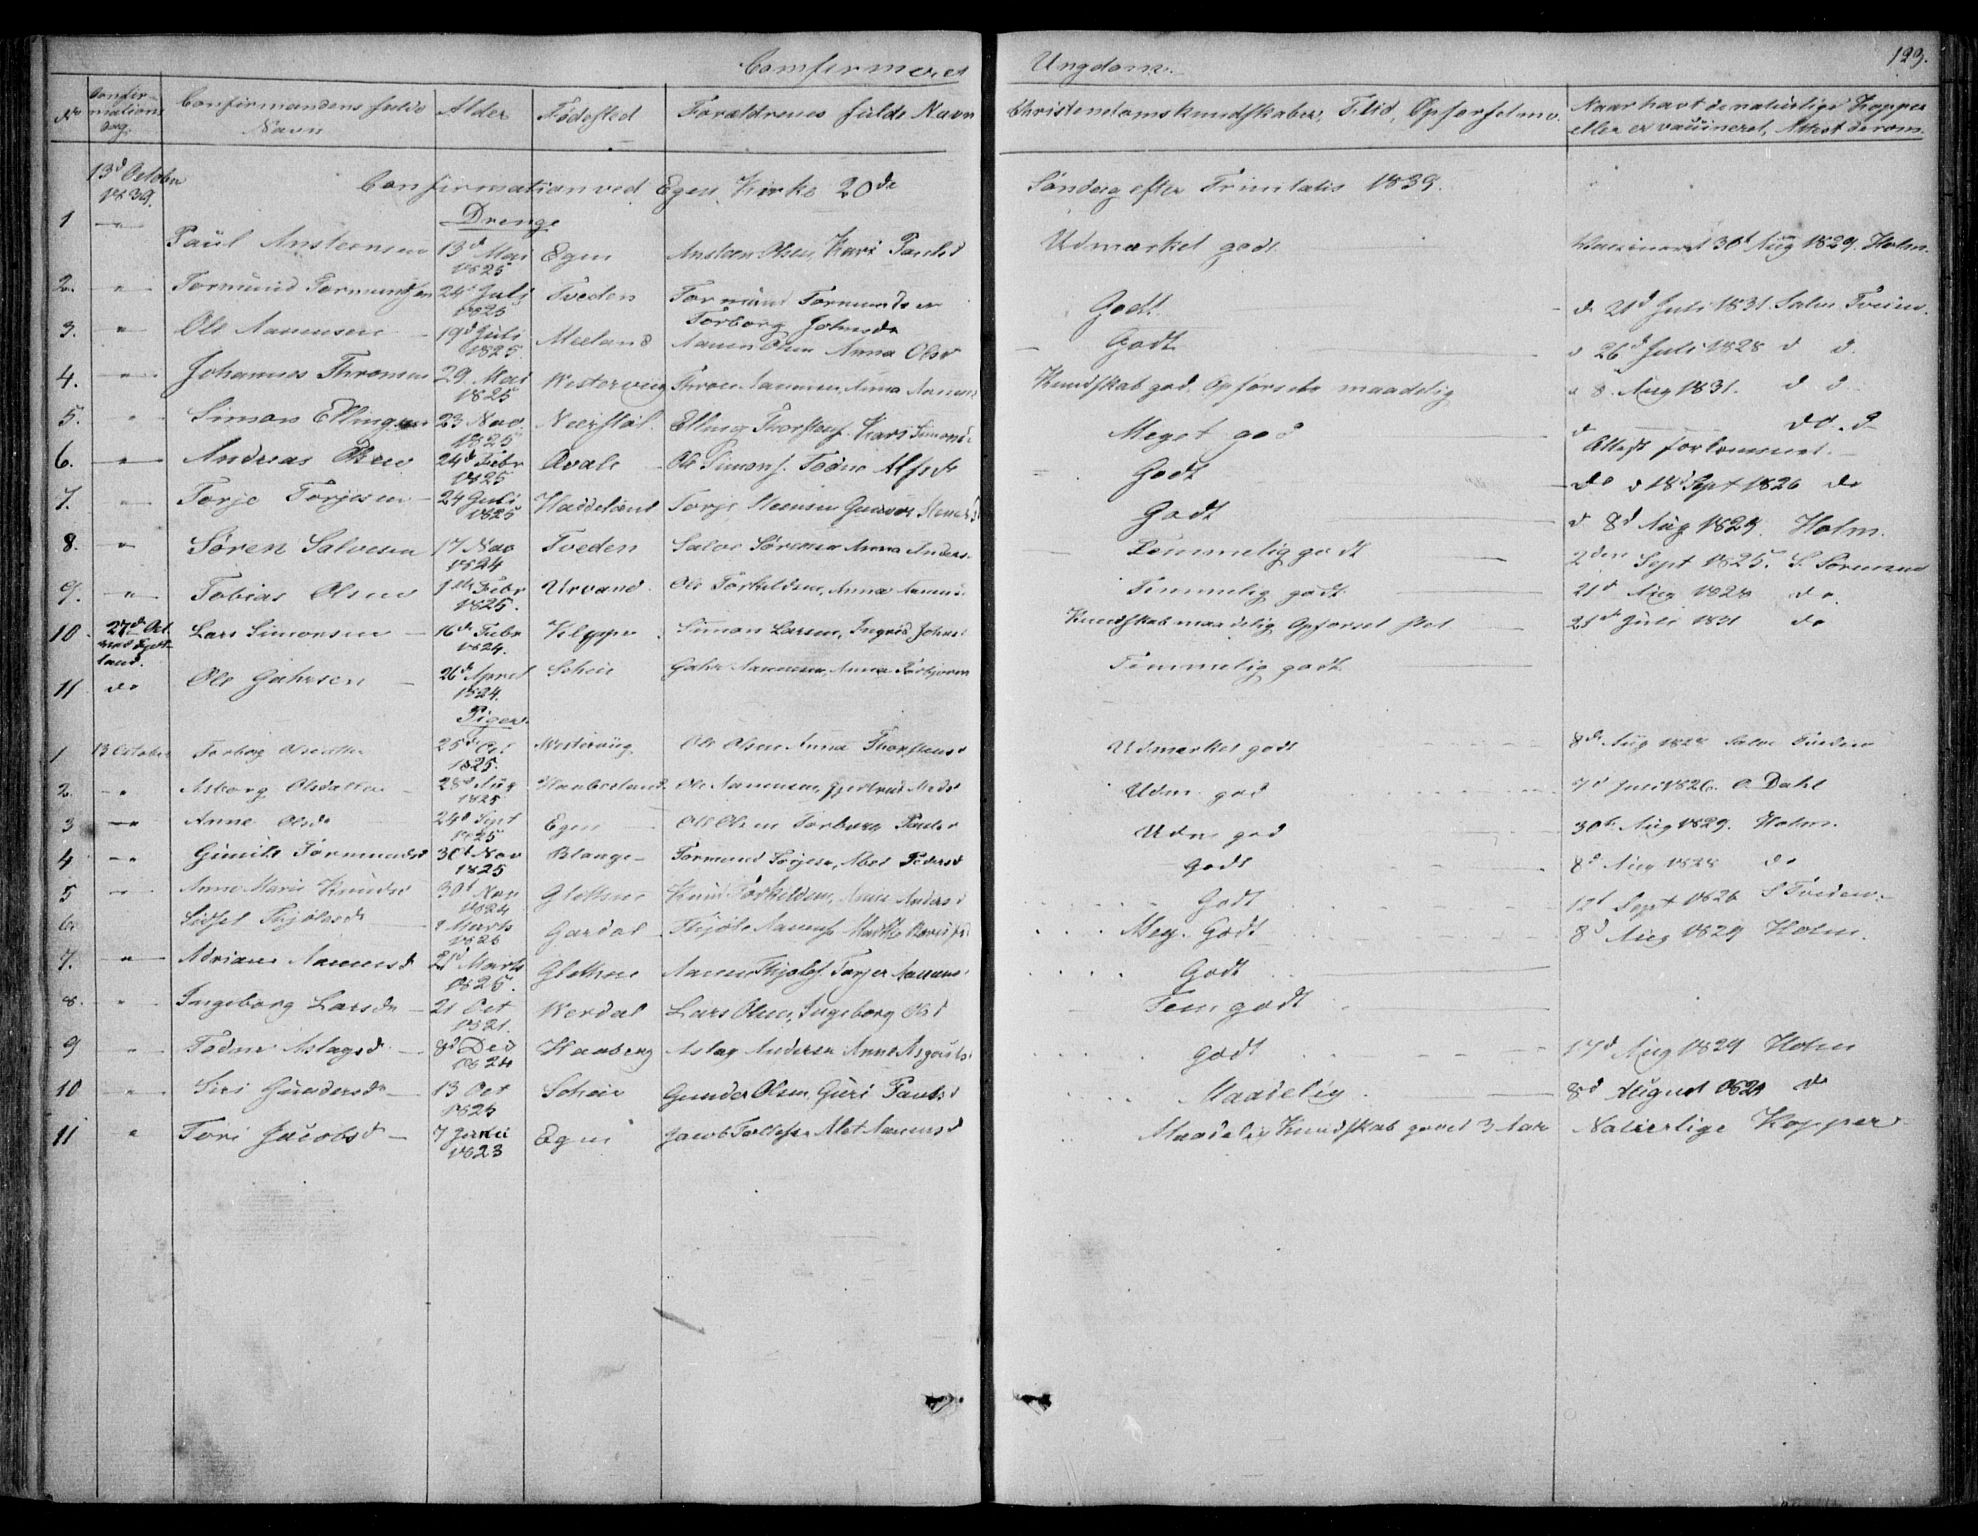 Confirmeret Ungdom. 123.
No Confirmations Dag. Confirmandens fulde Navn Alder Födested Forældrenes fulde Navn Christendomskundskaber, Flid, Opførsel m.v. Naar havt de naturlige Kopper eller er vaccineret, Attest derom.
13d October 1839. Confirmation ved Egen Kirke 20de Söndag efter Trinitatis 1839.
Drenge
1 Paul Ansteensen 13d Mai 1825 Egen Ansteen Olsen, Kari Paulsd Udmærket godt Vaccineret 30t Aug 1829. Holm.
2. Tormund Tormundsen 24d Juli 1825 Tveden Tormund Tormundsen Torborg Johnsdr Godt. d 21d Juli 1831. Salve Tveden.
3. Ole Aanensen 19d Juli 1825. Meeland Aanen Olsen Anna Olsd Godt d 26d Juli 1828 d d.
4. Johannes Thronsen 29 Mai 1825 Westerveig Thron Aanensen, Anna Kundskab god. Opførsels maadelig 8. Aug 1831. d d
5. Simon Ellingsen 23 Nov. 1825 Elling Thorstens. Kari Simonsd Meget god d do. d
6. Andreas Olsen 24d Febr 1825 Qvale Ole Simons. Todne Alfsdr Godt Attest forkommet.
7. Torje Torjesen 24 Juli 1825 Haddeland Torje Gunvor Godt do d 18d Sept 1826 do
8. Søren Salvesen 17 Nov 1824 Tveden Salve Sörensen Anna Anders. Temmelig godt d 8d Aug 1829. Holm.
9. Tobias Olsen 1825. Urvand Ole Torkeldsen, Anna Temmelig godt 2den Sept 1825. S. Sörensen
10. 27d Oct Lars Simonsen 16de Febr 1824. Kleppe Simon Larsen, Ingrid Johns. Kundskab maadelig Opførsel slet 21d Aug 1828 do.
11 do Ole Gahrsen 26d April 1824. Scheie Gahr Aanensen, Anna Temmelig godt 21d Juli 1831 do
Piger.
1 13 October Torborg Olsdatter 25d Oct 1825. Westerveig Ole Olsen Anna Thorstensd Udmærket godt 8de Aug 1828 Salve Tveden
2. Asborg Olsdatter 28d Aug 1825 Ole Aanensen, Gjertrud Udm. god 7d Juni 1826. O Dahl
3 Anne Olsdr 24d Sept 1825 Egen Ole Olsen Torborg Paulsd Udm god 30te Aug 1829. Holm.
4 Gunild Tormundsd 30t Nov 1825 Blange Tormund Torjesen, Abel Pedersd Godt 8d Aug 1828 do
5 Anne Marie Knudsd 30t Nov 1824 Glethne Knud Torkeldsen, Anne Andersd Godt 12t Sept 1826 S Tveden.
6. Sidsel Thjölsdr 2 Marts 1825 Gardal Thjöl Aanens. Meg. Godt 8d Aug 1829 Holm.
7. Adriane Aanensd 21d Marts 1825. Glethne Aanen Thjöls. Torjer Aanens Godt
8. Ingeborg Larsdr 21 Oct 1821. Werdal Lars Olsen, Ingeborg Olsd Tem godt
9 Todne Aslagsd. 8d Dec 1824 Haaberg Aslag Andersen Anne Godt 17d Aug 1829 Holm
10 Siri Gundersdr 13 Oct 1825 Scheie Gunder Olsen, Guri Paulsd Maadelig 8d August 1829 do
11 Tori Jacobsd 7 1823 Egen Jacob Tollefsen Alet Aanensd Maadelig Kundskab gaaet 3 Aar Naturlige Kopper